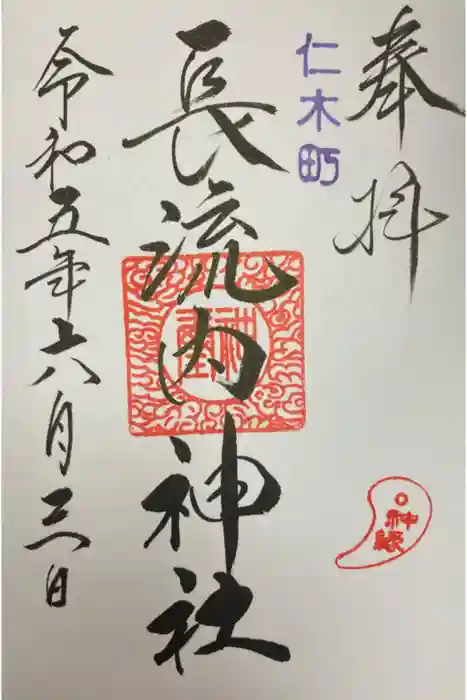 奉拝
仁木町
長流内神社
神璽
神縁
令和五年六月三日